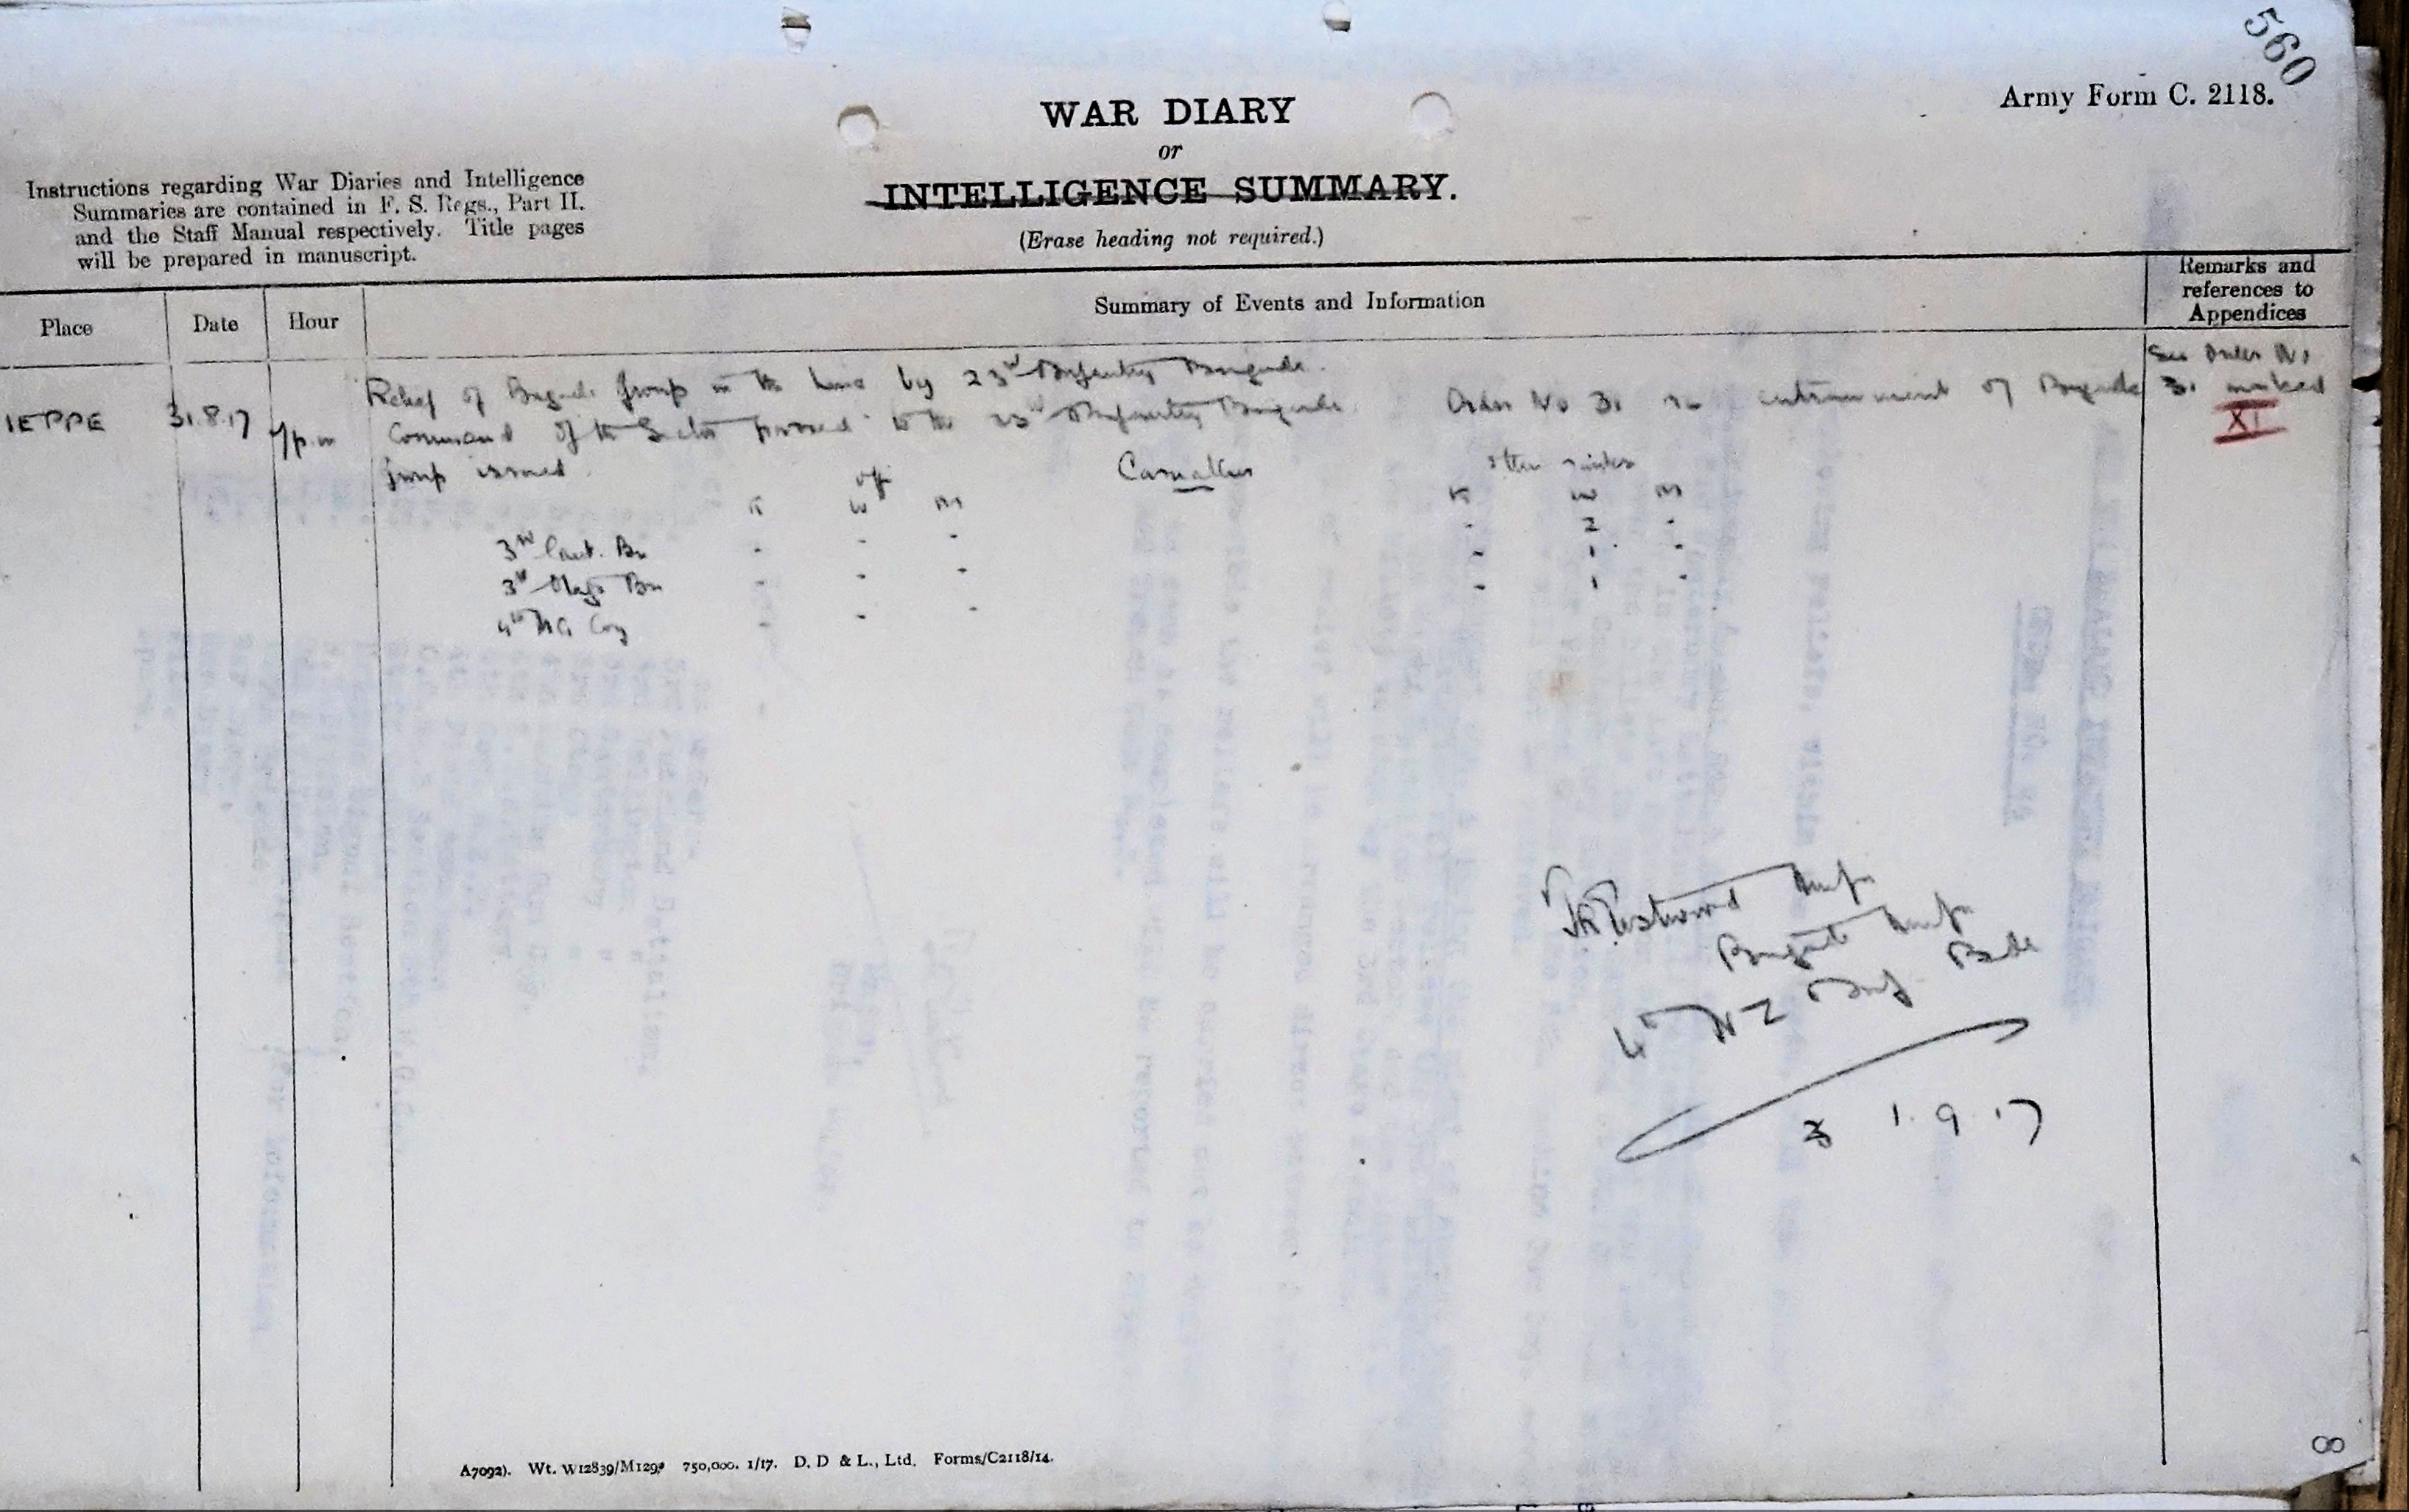 560
Army Form C. 2118.
WAR DIARY
or
INTELLIGENCE SUMMARY.
(Erase heading not required.)
Instructions regarding War Diaries and Intelligence
Summaries are contained in F. S. Regs., Part II.
and the Staff Manual respectively. Title pages
will be prepared in manuscript.
Place Date Hour Summary of Events and Information Remarks and
references to
Appendices
IEPPE 31.8.17 7p.m Relief of Brigade Group in the line by 23rd Infantry Brigade.
Command of the Sector passed to the 23rd Infantry Brigade. Order No 31 re entrainment of Brigade
Group issued.
See Order No
31 marked
XI
Casualties
Off Other ranks
K W M K W M
3rd Cant. Bn - - - - 2 -
3rd Otago Bn - - - - 1 -
4th MG Coy - - - - 1 -
Major
Brigade Major
4th NZ Inf Bde
1.9.17
A7092). Wt. W12839/M1293 750,000. 1/17. D. D & L., Ltd. Forms/C2118/14.
8